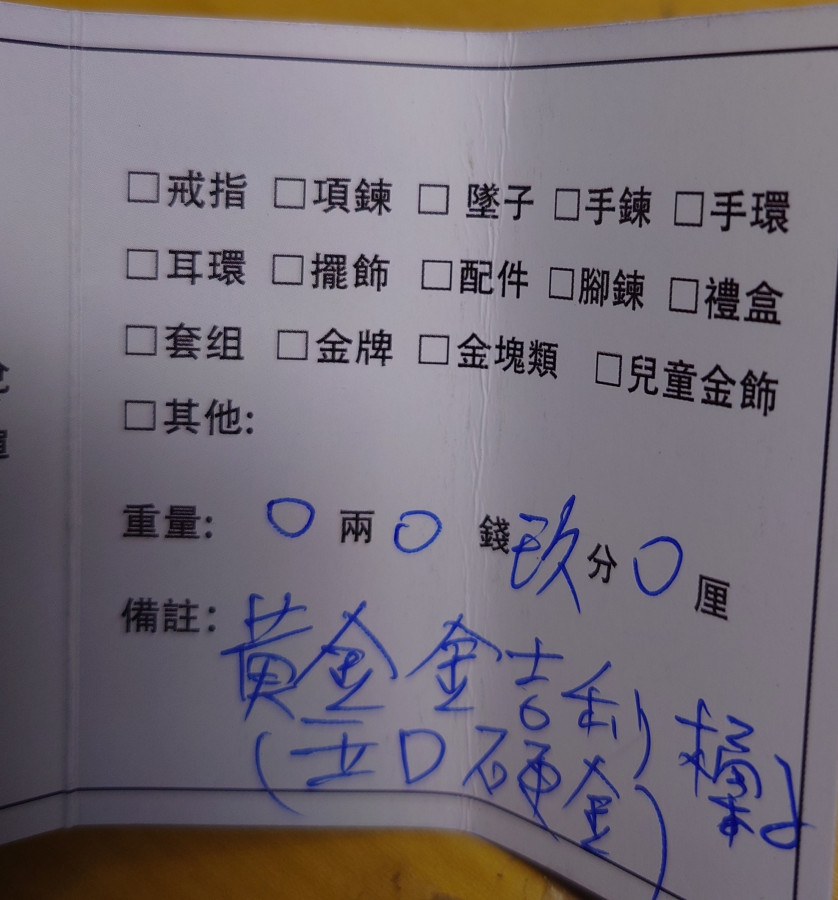 □戒指 □項鍊 □ 墜子 □手鍊 □手環
□耳環 □擺飾 □配件 □腳鍊 □禮盒
□套组 □金牌 □金塊類 □兒童金飾
□其他:
重量: 0 兩 0 錢 玖 分 0 厘
備註: 黃金 金吉利
硬金)